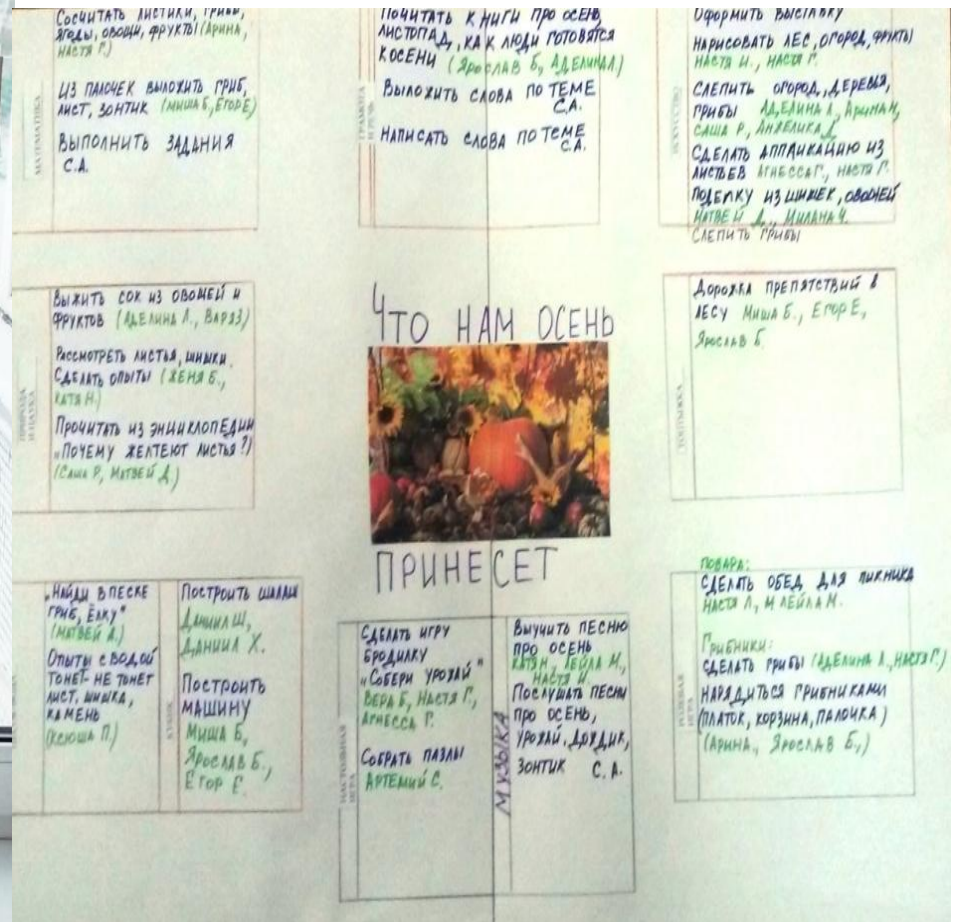 СОСЧИТАТЬ ЛИСТИКИ, ГРИБЫ,
ЯГОДЫ, ОВОЩИ, ФРУКТЫ (АРИНА,
НАСТЯ Г.)
ИЗ ПАЛОЧЕК ВЫЛОЖИТЬ ГРИБ,
ЛИСТ, ЗОНТИК (МИША Б, ЕГОР Е)
ВЫПОЛНИТЬ ЗАДАНИЯ
С.А.
МАТЕМАТИКА
ПОЧИТАТЬ КНИГИ ПРО ОСЕНЬ,
ЛИСТОПАД, КАК ЛЮДИ ГОТОВЯТСЯ
К ОСЕНИ (ЯРОСЛАВ Б, АДЕЛИНА Л)
ВЫЛОЖИТЬ СЛОВА ПО ТЕМЕ
С.А.
НАПИСАТЬ СЛОВА ПО ТЕМЕ
С.А.
ГРАМОТА
И РЕЧЬ
ОФОРМИТЬ ВЫСТАВКУ
НАРИСОВАТЬ ЛЕС, ОГОРОД, ФРУКТЫ
НАСТЯ И., НАСТЯ Г.
СЛЕПИТЬ ОГОРОД, ДЕРЕВЬЯ,
ГРИБЫ АДЕЛИНА Л, АРИНА Н,
САША Р, АНЖЕЛИКА Д
СДЕЛАТЬ АППЛИКАЦИЮ ИЗ
ЛИСТЬЕВ АГНЕССА Г., НАСТЯ Г.
ПОДЕЛКУ ИЗ ШИШЕК, ОВОЩЕЙ
МАТВЕЙ Д., МИЛАНА Ч.
СЛЕПИТЬ ГРИБЫ
ИСКУССТВО
ВЫЖИТЬ СОК ИЗ ОВОЩЕЙ И
ФРУКТОВ (АДЕЛИНА Л., ВАРЯ З)
РАССМОТРЕТЬ ЛИСТЬЯ, ШИШКИ.
СДЕЛАТЬ ОПЫТЫ (ЖЕНЯ Б.,
КАТЯ Н.)
ПРОЧИТАТЬ ИЗ ЭНЦИКЛОПЕДИИ
„ПОЧЕМУ ЖЕЛТЕЮТ ЛИСТЬЯ?)
(САША Р, МАТВЕЙ Д.)
ПРИРОДА
И НАУКА
ЧТО НАМ ОСЕНЬ
ПРИНЕСЕТ
ДОРОЖКА ПРЕПЯТСТВИЙ В
ЛЕСУ МИША Б., ЕГОР Е,
ЯРОСЛАВ Б.
„НАЙДИ В ПЕСКЕ
ГРИБ, ЁЛКУ"
(МАТВЕЙ Д.)
ОПЫТЫ С ВОДОЙ
ТОНЕТ- НЕ ТОНЕТ
ЛИСТ, ШИШКА,
КАМЕНЬ
(КСЮША П.)
ПОСТРОИТЬ ШАЛАШ
ДАНИИЛ Ш,
ДАНИИЛ Х.
ПОСТРОИТЬ
МАШИНУ
МИША Б,
ЯРОСЛАВ Б.,
ЕГОР Е.
СДЕЛАТЬ ИГРУ
БРОДИЛКУ
„СОБЕРИ УРОЖАЙ"
ВЕРА Б, НАСТЯ Г.,
АГНЕССА Г.
СОБРАТЬ ПАЗЛЫ
АРТЕМИЙ С.
НАСТОЛЬНАЯ
ИГРА
ВЫУЧИТЬ ПЕСНЮ
ПРО ОСЕНЬ
КАТЯ Н, ЛЕЙЛА М.,
НАСТЯ И.
ПОСЛУШАТЬ ПЕСНИ
ПРО ОСЕНЬ,
УРОЖАЙ, ДОЖДИК,
ЗОНТИК С.А.
МУЗЫКА
ПОВАРА:
СДЕЛАТЬ ОБЕД ДЛЯ ПИКНИКА
НАСТЯ Л., ЛЕЙЛА М.
ГРИБНИКИ:
СДЕЛАТЬ ГРИБЫ (АДЕЛИНА Л., НАСТЯ Г.)
НАРЯДИТЬСЯ ГРИБНИКАМИ
(ПЛАТОК, КОРЗИНА, ПАЛОЧКА)
(АРИНА., ЯРОСЛАВ Б.,)
РОЛЕВАЯ
ИГРА